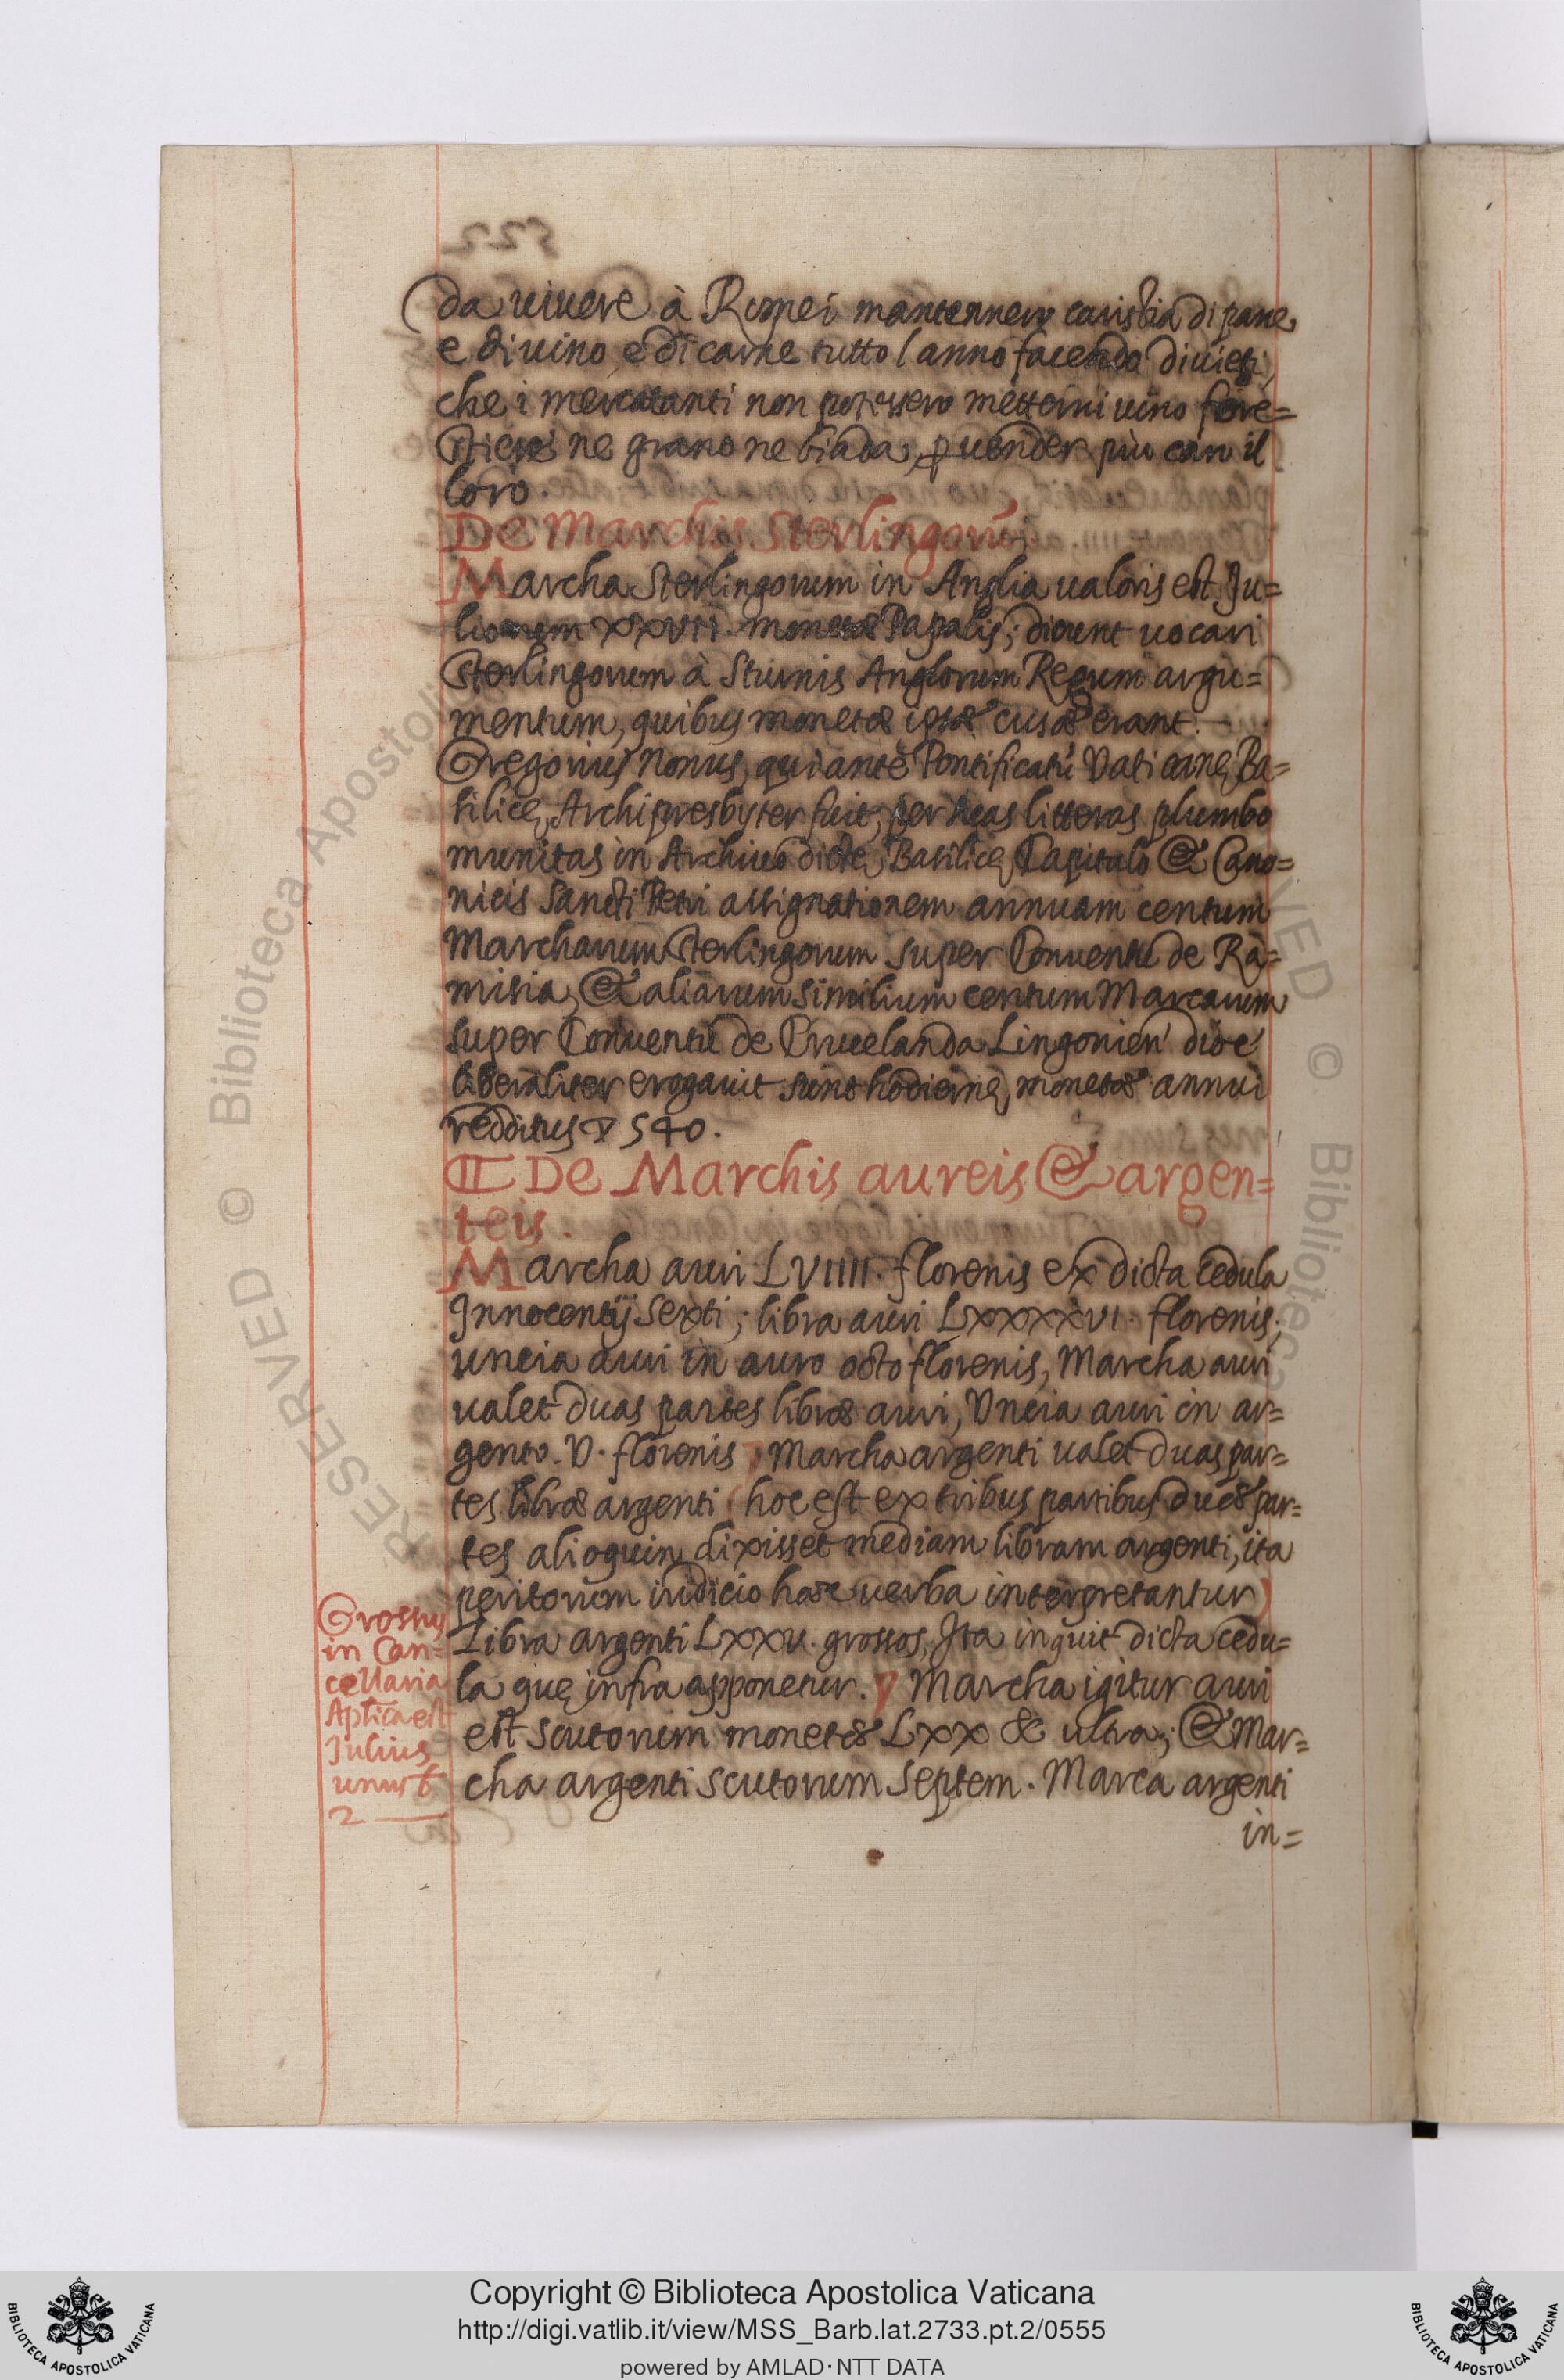 da uiuere à Romei mantennero caristia di pane
e di uino, e di carne tutto l anno facendo diuieti,
che i mercatanti non potessero metterui uino fore=
stiere ne grano ne biada, ꝑ uender più caro il
loro.
De Marchis Sterlingorũ.
Marcha Sterlingorum in Anglia ualoris est Ju=
liorum XXVII. monetæ Papalis; dicunt uocari
Sterlingorum à Sturnis Anglorum Regum argu=
mentum, quibus monetæ ipsæ cusæ erant.
Gregorius Nonus, qui antè Pontificatũ Vaticanę Ba=
silicę Archipresbyter fuit, per suas litteras plumbo
munitas in Archiuo dictę Basilicę Capitulo & Cano=
nicis Sancti Petri assignationem annuam centum
Marcharum Sterlingorum super Conuentu de Ra=
misia, & aliarum similium centum Marcarum
super Conuentu de Cruelanda Lingonien' dioc'
liberaliter erogauit sunt hodiernę monetæ annui
redditus ∇ 540.
De Marchis aureis & argen=
teis.
Marcha auri LVIIII. florenis ex dicta cedula
Innocentij Sexti; libra auri LXXXXVI. florenis;
uncia auri in auro octo florenis, Marcha auri
ualet duas partes libræ auri, Vncia auri in ar=
gento. V. florenis, Marcha argenti ualet duas par=
tes libræ argenti (hoc est ex tribus partibus duas par=
tes alioquin dixisset mediam libram argenti, ita
peritorum iudicio hæc uerba interpretantur)
Libra argenti LXXV. grossos, Ita inquit dicta cedu=
la quę infra apponetur. Marcha igitur auri
est scutorum monetæ LXX & ultra; & Mar=
cha argenti scutorum septem. Marca argenti
in=
Grossus
in Can=
cellaria
Apľica est
Julius
unus b
2
Copyright © Biblioteca Apostolica Vaticana
http://digi.vatlib.it/view/MSS_Barb.lat.2733.pt.2/0555
powered by AMLAD·NTT DATA
BIBLIOTECA APOSTOLICA VATICANA
BIBLIOTECA APOSTOLICA VATICANA